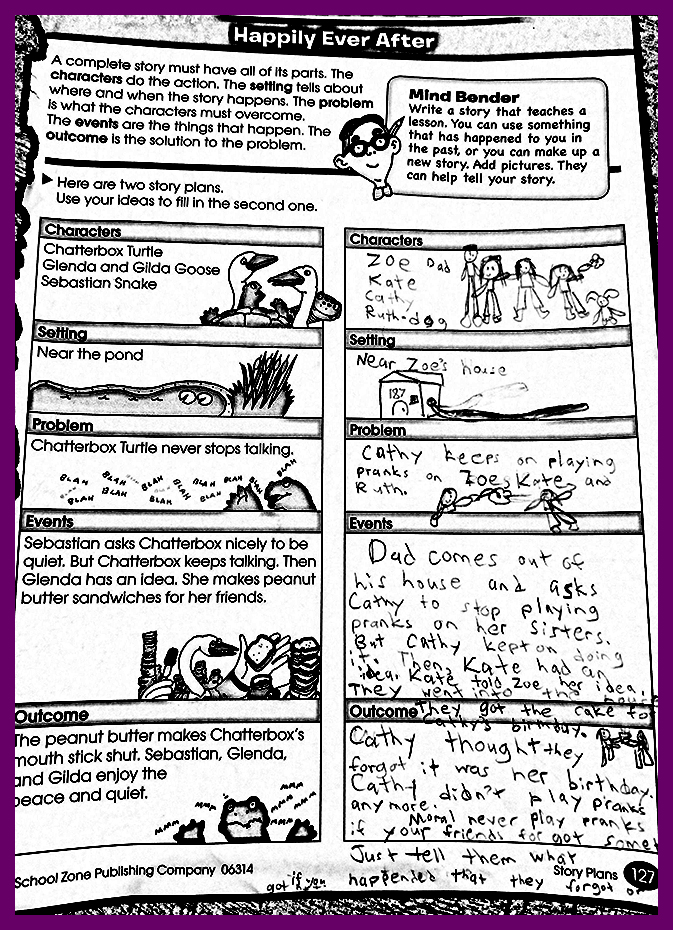 Happily Ever After
A complete story must have all of its parts. The
characters do the action. The setting tells about
where and when the story happens. The problem
is what the characters must overcome.
The events are the things that happen. The
outcome is the solution to the problem.
Mind Bender
Write a story that teaches a
lesson. You can use something
that has happened to you in
the past, or you can make up a
new story. Add pictures. They
can help tell your story.
Here are two story plans.
Use your ideas to fill in the second one.
Characters
Chatterbox Turtle
Glenda and Gilda Goose
Sebastian Snake
Setting
Near the pond
Problem
Chatterbox Turtle never stops talking.
BLAH BLAH BLAH BLAH BLAH BLAH BLAH
BLAH BLAH BLAH BLAH
Events
Sebastian asks Chatterbox nicely to be
quiet. But Chatterbox keeps talking. Then
Glenda has an idea. She makes peanut
butter sandwiches for her friends.
Outcome
The peanut butter makes Chatterbox's
mouth stick shut. Sebastian, Glenda,
and Gilda enjoy the
peace and quiet.
MMM MMM MMM MMM MMM
Characters
Zoe Dad
Kate
Cathy
Ruth-dog
Setting
Near Zoe's house
187
Problem
Cathy keeps on playing
pranks on Zoe, Kate, and
Ruth.
Events
Dad comes out of
his house and asks
Cathy to stop playing
pranks on her sisters.
But Cathy kept on doing
it. Then, Kate had an
idea. Kate told Zoe her idea.
They went into the house
They got the cake to
Outcome
Cathy's birthday.
Cathy thought they
forgot it was her birthday.
Cathy didn't play pranks
anymore.
Moral never play pranks
if your friends for got somet
Just tell them what
happened that they forgot or
got if you
School Zone Publishing Company 06314
Story Plans 127